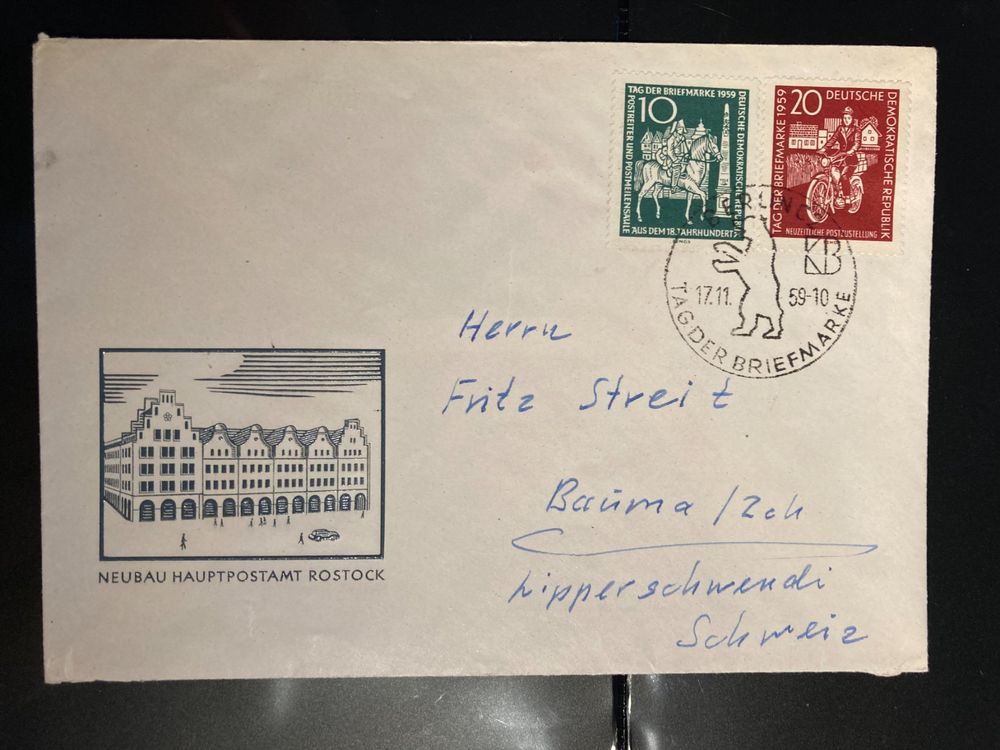 TAG DER BRIEFMARKE 1959
10
POSTREITER UND POSTMEILENSÄULE
DEUTSCHE DEMOKRATISCHE REPUBLIK
AUS DEM 18. JAHRHUNDERT
20
DEUTSCHE
DEMOKRATISCHE REPUBLIK
TAG DER BRIEFMARKE 1959
NEUZEITLICHE POSTZUSTELLUNG
BERLIN C
KB
17.11. 59-10
TAG DER BRIEFMARKE
Herrn
Fritz Streit
Bauma / Zch
Lipperschwendi
Schweiz
NEUBAU HAUPTPOSTAMT ROSTOCK